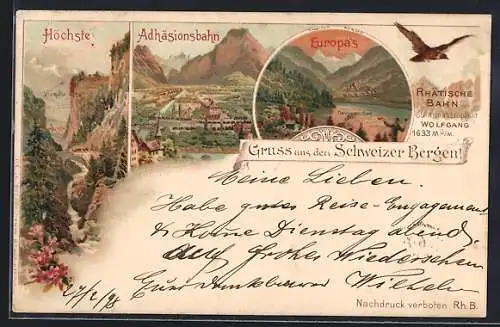 Höchste
Adhäsionsbahn
Europa's
RHÄTISCHE
BAHN
WOLFGANG
1633 M Ü/M.
Gruss aus den Schweizer Bergen!
Meine Lieben.
Habe gutes Reise-Engagement
& Kome Dienstag abend
auf frohes Wiedersehen
Euer dankbarer Wilhelm
27/2/98
Nachdruck verboten Rh. B.